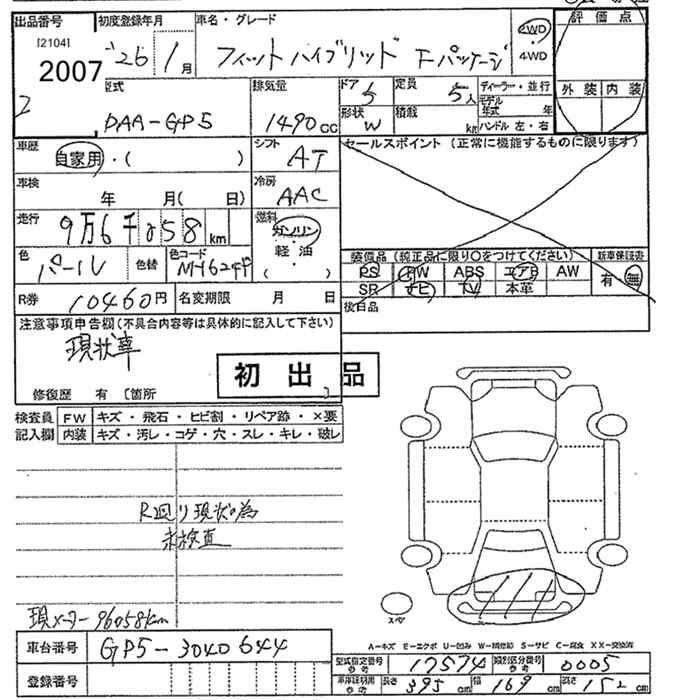 出品番号 初度登録年月 車名・グレード 評価点
[2104] '26 1月 フィットハイブリッド Fパッケージ 2WD 4WD
2007 外装 内装
型式 排気量 ドア 定員 ディーラー・並行
DAA-GP5 1490cc 5 5人 モデル年式 年
形状 W 積載 kg ハンドル 左・右
車歴 自家用・( ) シフト AT セールスポイント (正常に機能するものに限ります)
車検 年 月( 日) 冷房 AAC
走行 9万6千058km 燃料 ガソリン 軽・油 ( )
色 パール 色替 色コード 装備品 (純正品に限り○をつけてください) 新車保証書
PS PW ABS エアB AW 有・無
R券 10460円 名変期限 月 日 SR ナビ TV 本革
後日品
注意事項申告欄(不具合内容等は具体的に記入して下さい)
現状車
初出品
修復歴 有 〔箇所 〕
検査員 FW キズ・飛石・ヒビ割・リペア跡・×要
記入欄 内装 キズ・汚レ・コゲ・穴・スレ・キレ・破レ
R回り現状の為
未検査
スペア
現メーター96058km
車台番号 GP5-3040644
A-キズ E-エクボ U-凹み W-補修跡 S-サビ C-腐食 XX-交換済
型式指定番号 参考 17574 類別区分番号 参考 0005
登録番号 車体証明用 参考 長さ 395cm 幅 169cm 高さ 152cm